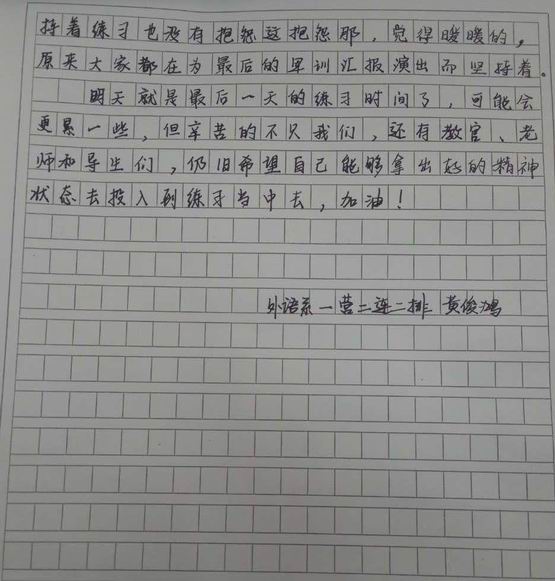 持着练习也没有抱怨这抱怨那，觉得暖暖的，
原来大家都在为最后的军训汇报演出而坚持着。
明天就是最后一天的练习时间了，可能会
更累一些，但辛苦的不只我们，还有教官、老
师和导生们，仍旧希望自己能够拿出好的精神
状态去投入到练习当中去，加油！
外语系一营二连二排 黄俊鸿